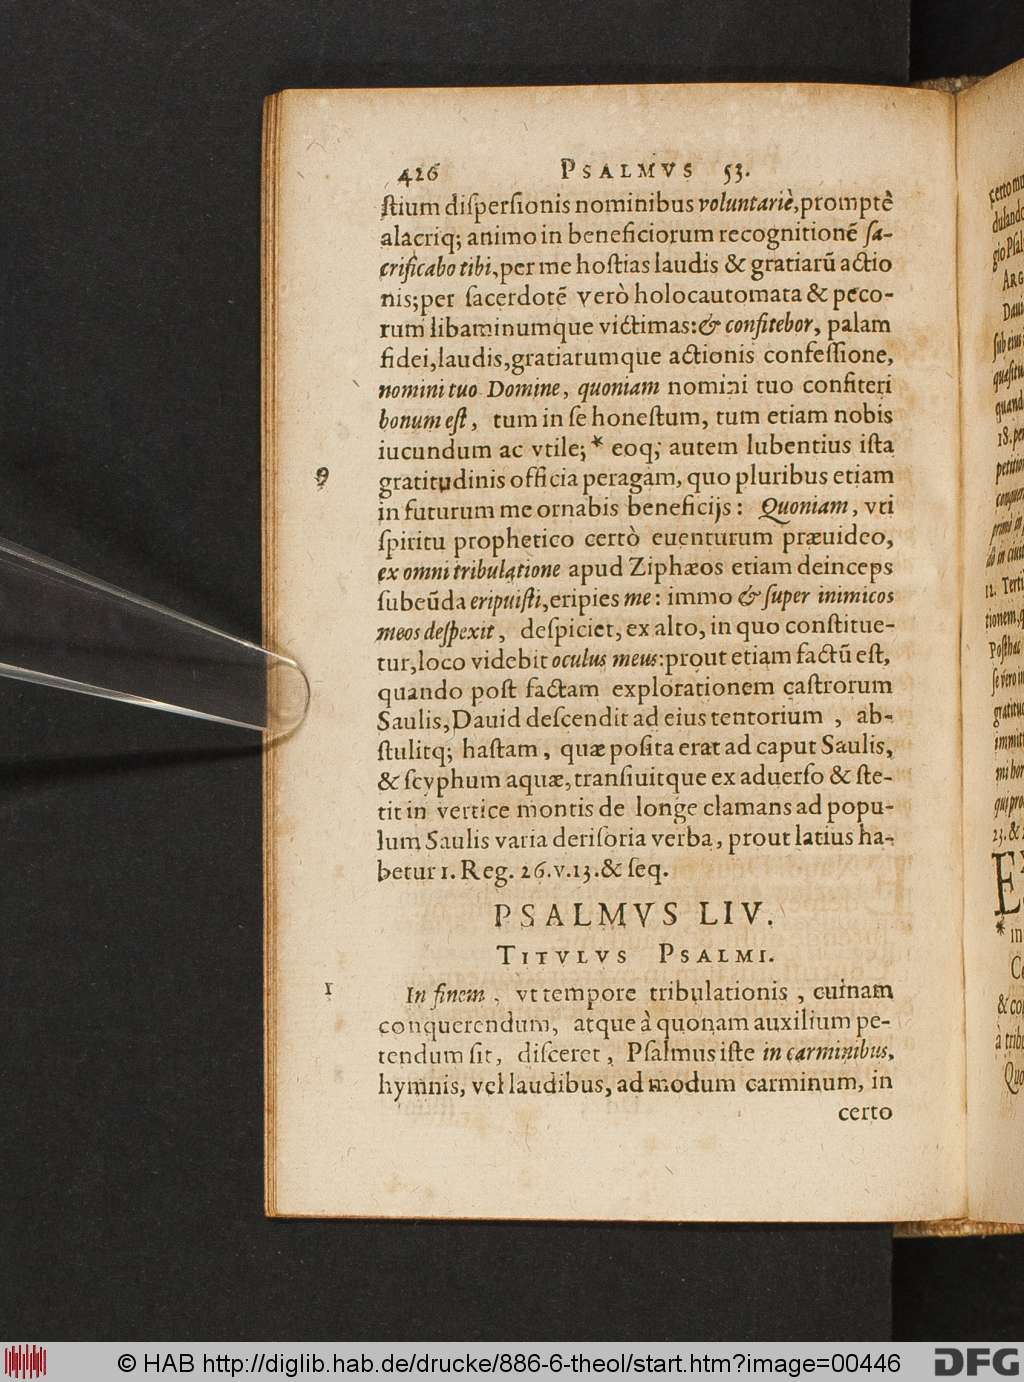 426 PSALMVS 53.
ſtium diſperſionis nominibus voluntariè, promptè
alacriq; animo in beneficiorum recognitionē ſa-
crificabo tibi, per me hoſtias laudis & gratiarū actio
nis; per ſacerdotē verò holocautomata & peco-
rum libaminumque victimas: & confitebor, palam
fidei, laudis, gratiarumque actionis confeſſione,
nomini tuo Domine, quoniam nomini tuo confiteri
bonum eſt, tum in ſe honeſtum, tum etiam nobis
iucundum ac vtile; * eoq; autem lubentius iſta
9 gratitudinis officia peragam, quo pluribus etiam
in futurum me ornabis beneficijs: Quoniam, vti
ſpiritu prophetico certò euenturum præuideo,
ex omni tribulatione apud Ziphæos etiam deinceps
ſubeūda eripuiſti, eripies me: immo & ſuper inimicos
meos deſpexit, deſpiciet, ex alto, in quo conſtitue-
tur, loco videbit oculus meus: prout etiam factū eſt,
quando poſt factam explorationem caſtrorum
Saulis, Dauid deſcendit ad eius tentorium, ab-
ſtulitq; haſtam, quæ poſita erat ad caput Saulis,
& ſcyphum aquæ, tranſiuitque ex aduerſo & ſte-
tit in vertice montis de longe clamans ad popu-
lum Saulis varia deriſoria verba, prout latius ha-
betur 1. Reg. 26. v. 13. & ſeq.
PSALMVS LIV.
TITVLVS PSALMI.
1 In finem, vt tempore tribulationis, cuinam
conquerendum, atque à quonam auxilium pe-
tendum ſit, diſceret, Pſalmus iſte in carminibus,
hymnis, vel laudibus, ad modum carminum, in
certo
© HAB http://diglib.hab.de/drucke/886-6-theol/start.htm?image=00446 DFG